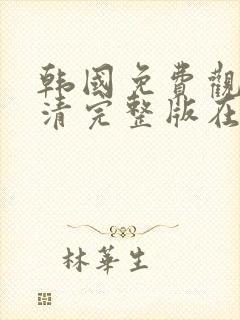 韩國免費觀
清完整版在
林華生